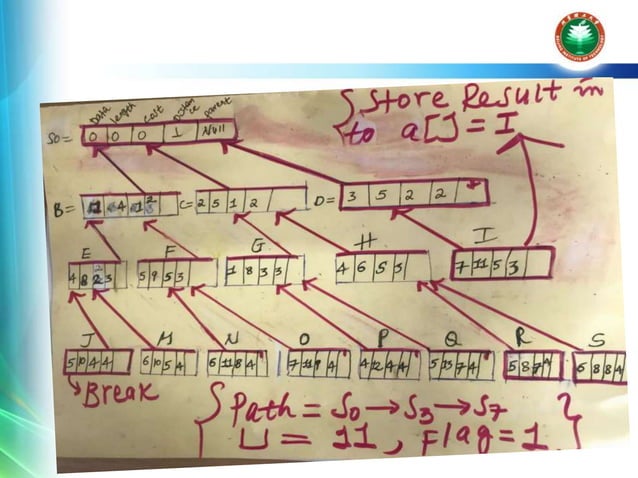 Data length Cost Distance Parent
{ Store Result in
to a[] = I
S0 = 0 0 0 1 Null
B = C= 2 5 1 2 D= 3 5 2 2
E F G H I
4 8 2 3 5 9 5 3 1 8 3 3 4 6 5 3 7 11 5 3
J M N O P Q R S
5 10 4 4 6 10 5 4 6 11 8 4 7 11 9 4 4 12 4 4 5 13 7 4 5 8 7 4 6 8 8 4
Break
{ Path = S0 → S3 → S7 }
= 11, Flag = 1